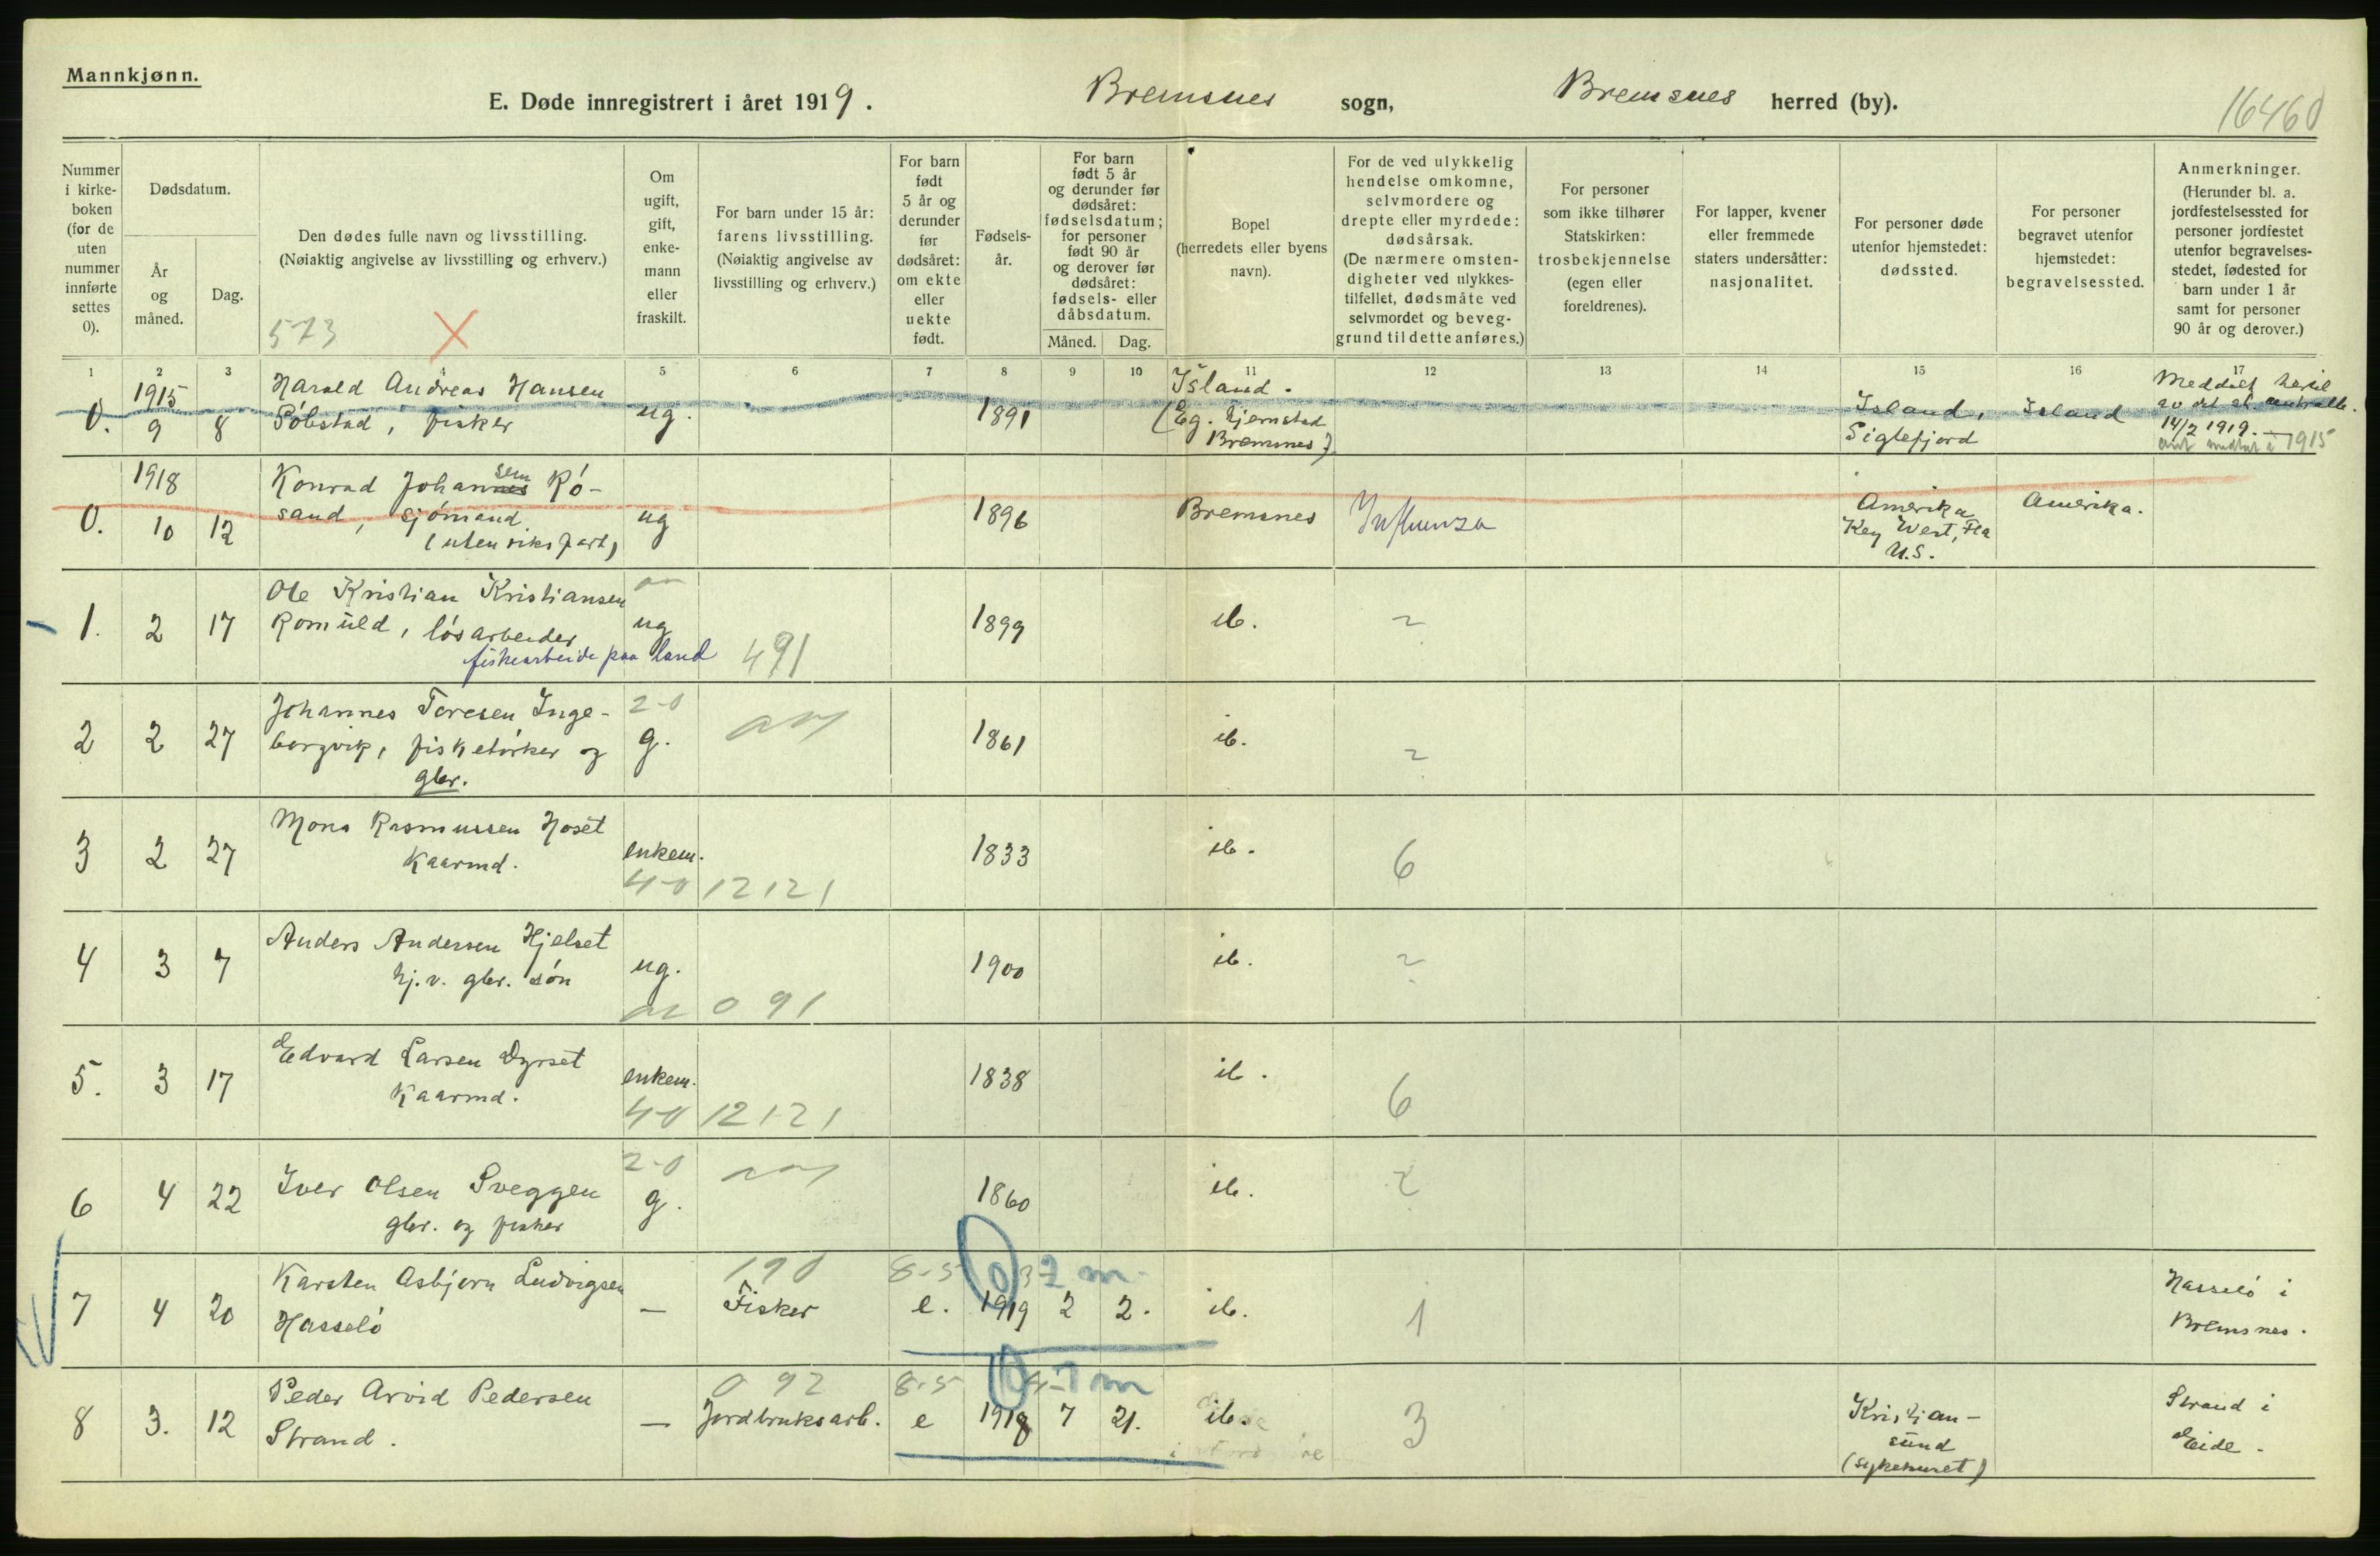 Mannkjønn.
E. Døde innregistrert i året 1919. Bremsnes sogn, Bremsnes herred (by).
16460
Nummer i kirke-boken (for de uten nummer innførte settes 0).
Dødsdatum.
År og måned.
Dag.
Den dødes fulle navn og livsstilling.
(Nøiaktig angivelse av livsstilling og erhverv.)
573 X
Om ugift, gift, enke-mann eller fraskilt.
For barn under 15 år: farens livsstilling. (Nøiaktig angivelse av livsstilling og erhverv.)
For barn født 5 år og derunder før dødsåret: om ekte eller uekte født.
Fødsels-år.
For barn født 5 år og derunder før dødsåret: fødselsdatum; for personer født 90 år og derover før dødsåret: fødsels- eller dåbsdatum.
Måned. Dag.
Bopel (herredets eller byens navn).
For de ved ulykkelig hendelse omkomne, selvmordere og drepte eller myrdede: dødsårsak. (De nærmere omsten-digheter ved ulykkes-tilfellet, dødsmåte ved selvmordet og beveg-grund til dette anføres.)
For personer som ikke tilhører Statskirken: trosbekjennelse (egen eller foreldrenes).
For lapper, kvener eller fremmede staters undersåtter: nasjonalitet.
For personer døde utenfor hjemstedet: dødssted.
For personer begravet utenfor hjemstedet: begravelsessted.
Anmerkninger. (Herunder bl. a. jordfestelsessted for personer jordfestet utenfor begravelses-stedet, fødested for barn under 1 år samt for personer 90 år og derover.)
1 2 3 4 5 6 7 8 9 10 11 12 13 14 15 16 17
1915 Harald Andreas Hansen Island. Meddelt hertil
0. 9 8 Solstad, fisker ug. 1891 (Eg. hjemsted Island, Island av det st.
Bremsnes) Siglefjord 14/2 1919. 1915
1918 Konrad Johannessen Rö-
0. 10 12 sand, sjömand ug 1896 Bremsnes Influenza Amerika Amerika.
(utenriks fart) Key West, Fla
U.S.
Ole Kristian Kristiansen
1. 2 17 Romüld, lösarbeider ug 1899 ib. 2
fiskearbeide paa land 491
Johannes Toresen Inge- 2-0
2 2 27 borgvik, fisketörker og g. 1861 ib. 2
gbr.
Mons Rasmussen Hoset
3 2 27 Kaarmd. enkem. 1833 ib. 6
4-0 12121
Anders Andersen Hjelset
4 3 7 hj. v. gbr. sön ug. 1900 ib. 2
091
Edvard Larsen Dyrset
5. 3 17 Kaarmd. enkem. 1838 ib. 6
4-0 12121
2-0
6 4 22 Iver Olsen Sveggen g. 1860 ib. 2
gbr. og fisker
Karsten Asbjørn Ludvigsen 190 8-5 0 2 m Hasselö i
7 4 20 Hasselö — Fisker e. 1919 2 2. ib. 1 Bremsnes.
Peder Arvid Pedersen 092 8-5 0 7 m Strand i
8 3. 12 Strand. — Jordbruksarb. e 1918 7 21. ib. 3 Kristian- Eide.
sund
(sykehuset)